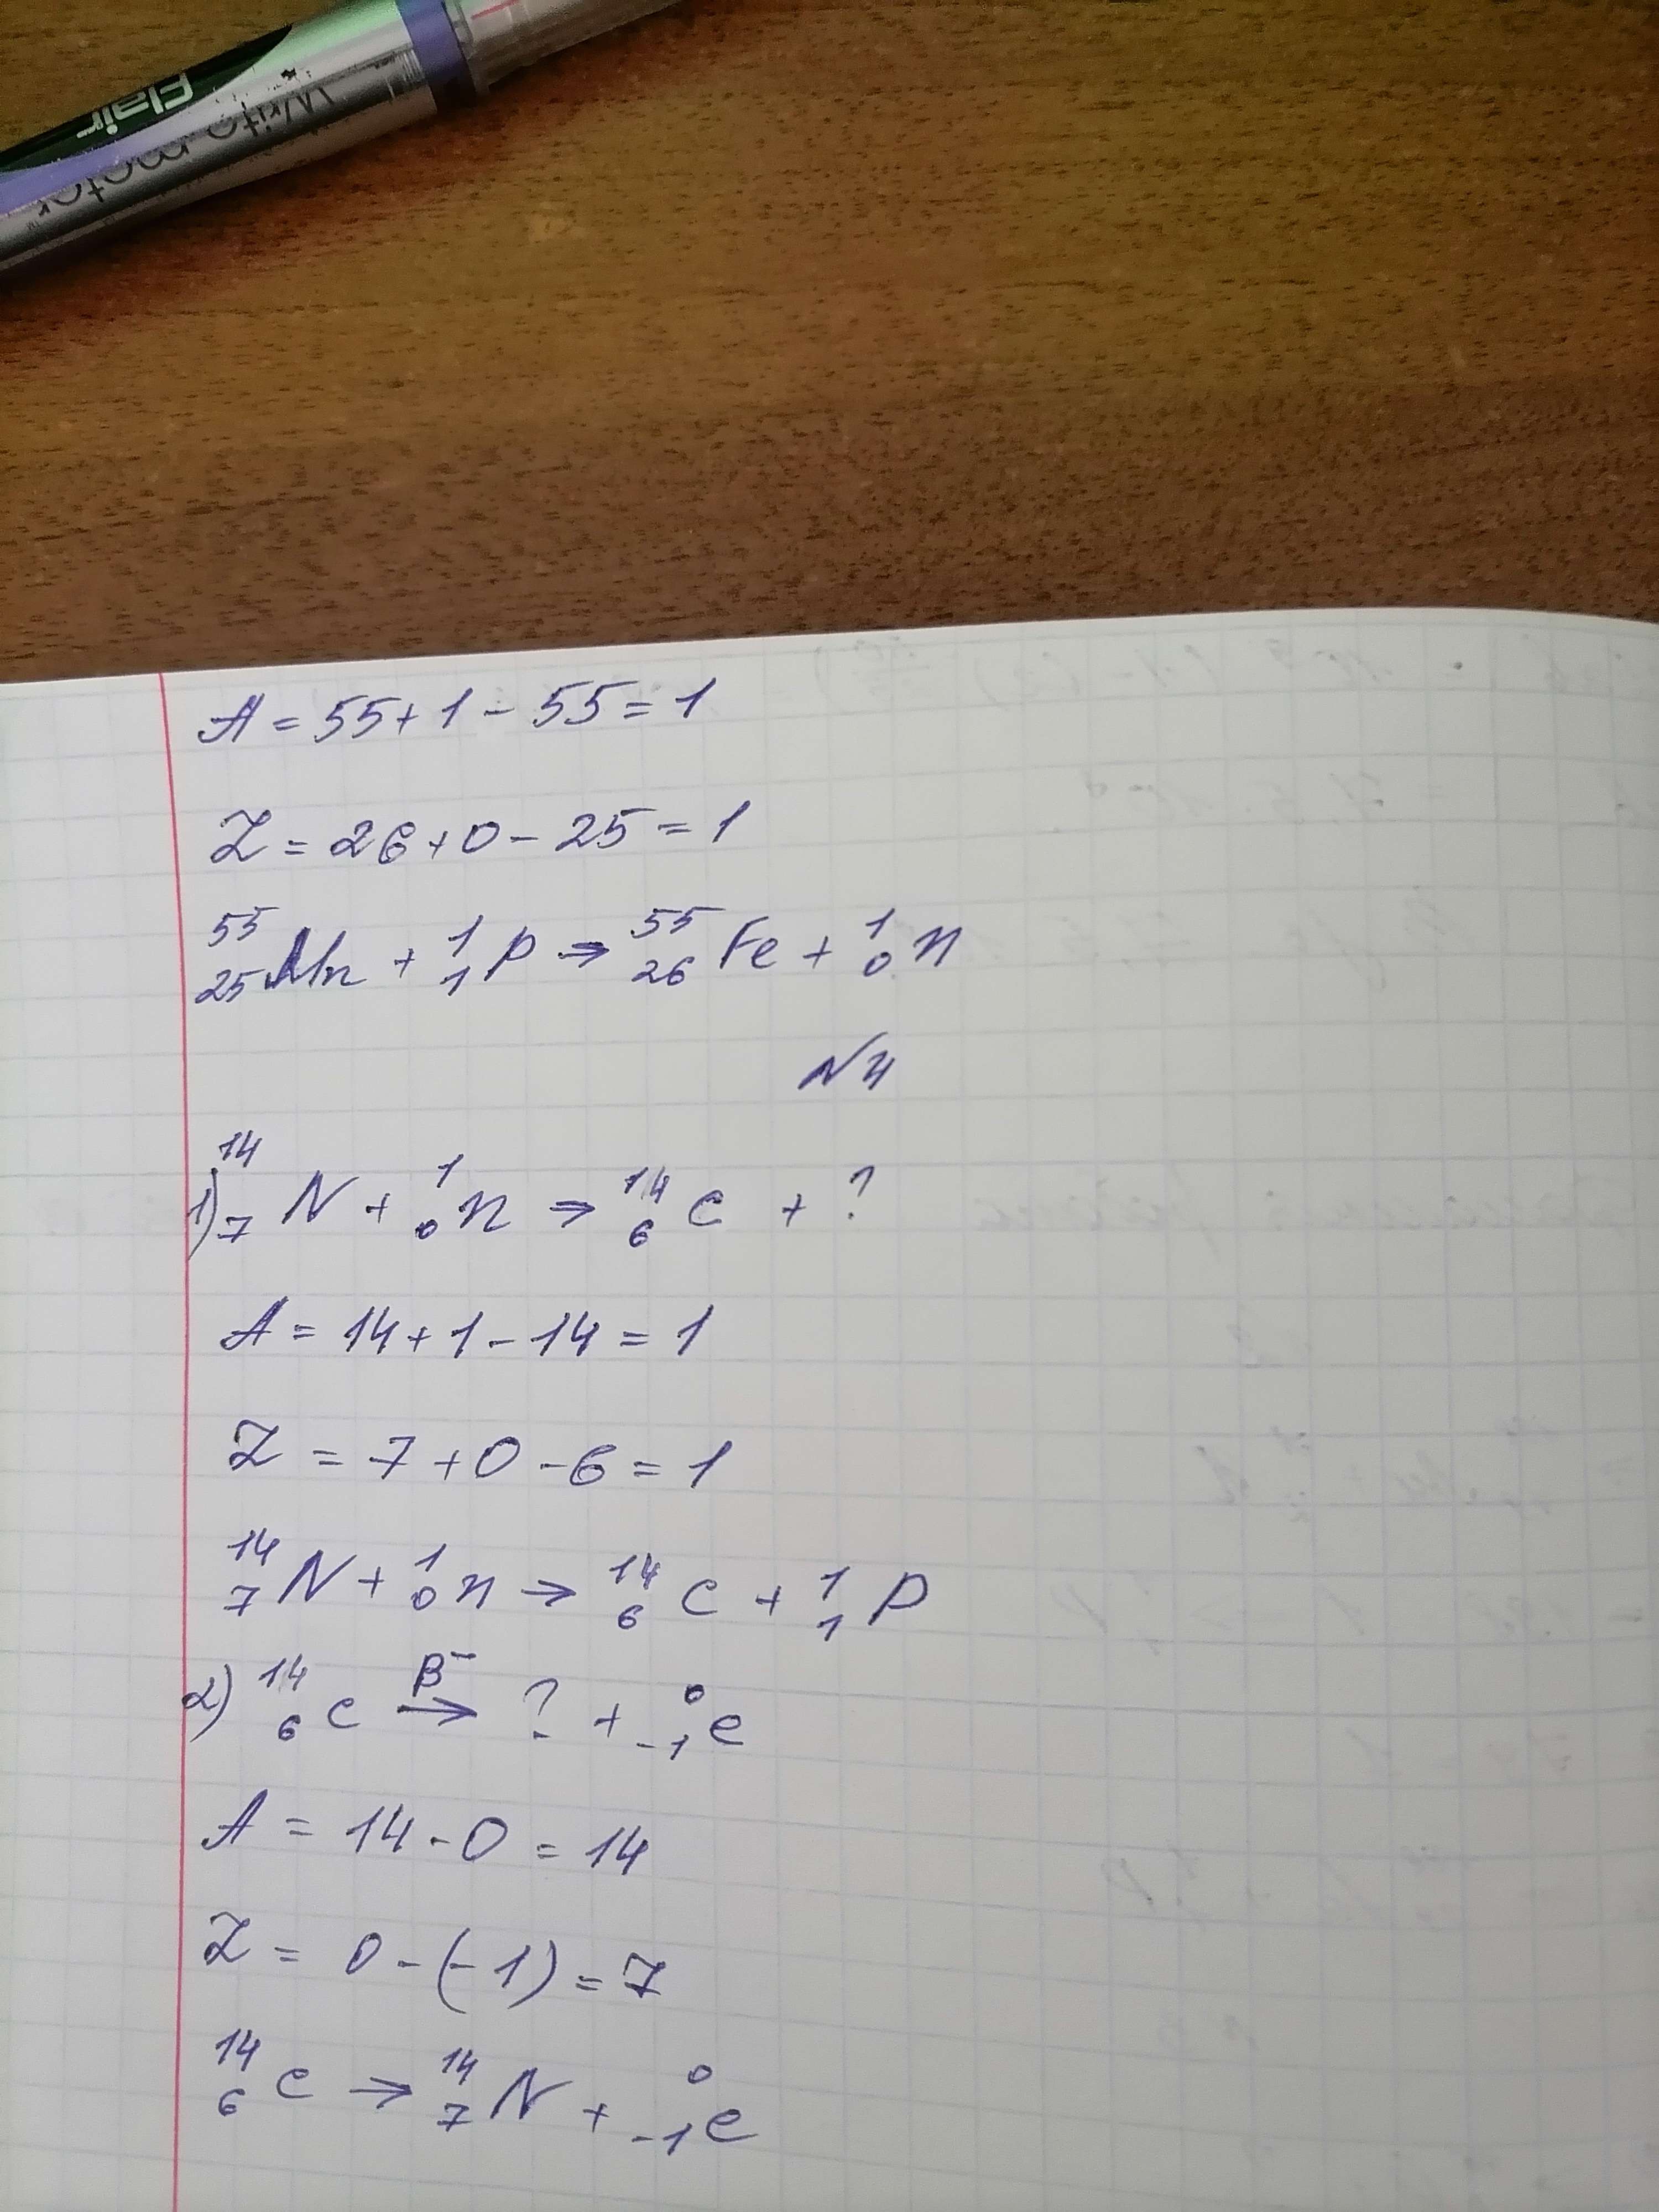 Flair
Writo-meter
A = 55 + 1 - 55 = 1
Z = 26 + 0 - 25 = 1
⁵⁵₂₅Mn + ¹₁p → ⁵⁵₂₆Fe + ¹₀n
N4
1) ¹⁴₇N + ¹₀n → ¹⁴₆C + ?
A = 14 + 1 - 14 = 1
Z = 7 + 0 - 6 = 1
¹⁴₇N + ¹₀n → ¹⁴₆C + ¹₁p
2) ¹⁴₆C →(β⁻) ? + ⁰₋₁e
A = 14 - 0 = 14
Z = 0 - (-1) = 7
¹⁴₆C → ¹⁴₇N + ⁰₋₁e